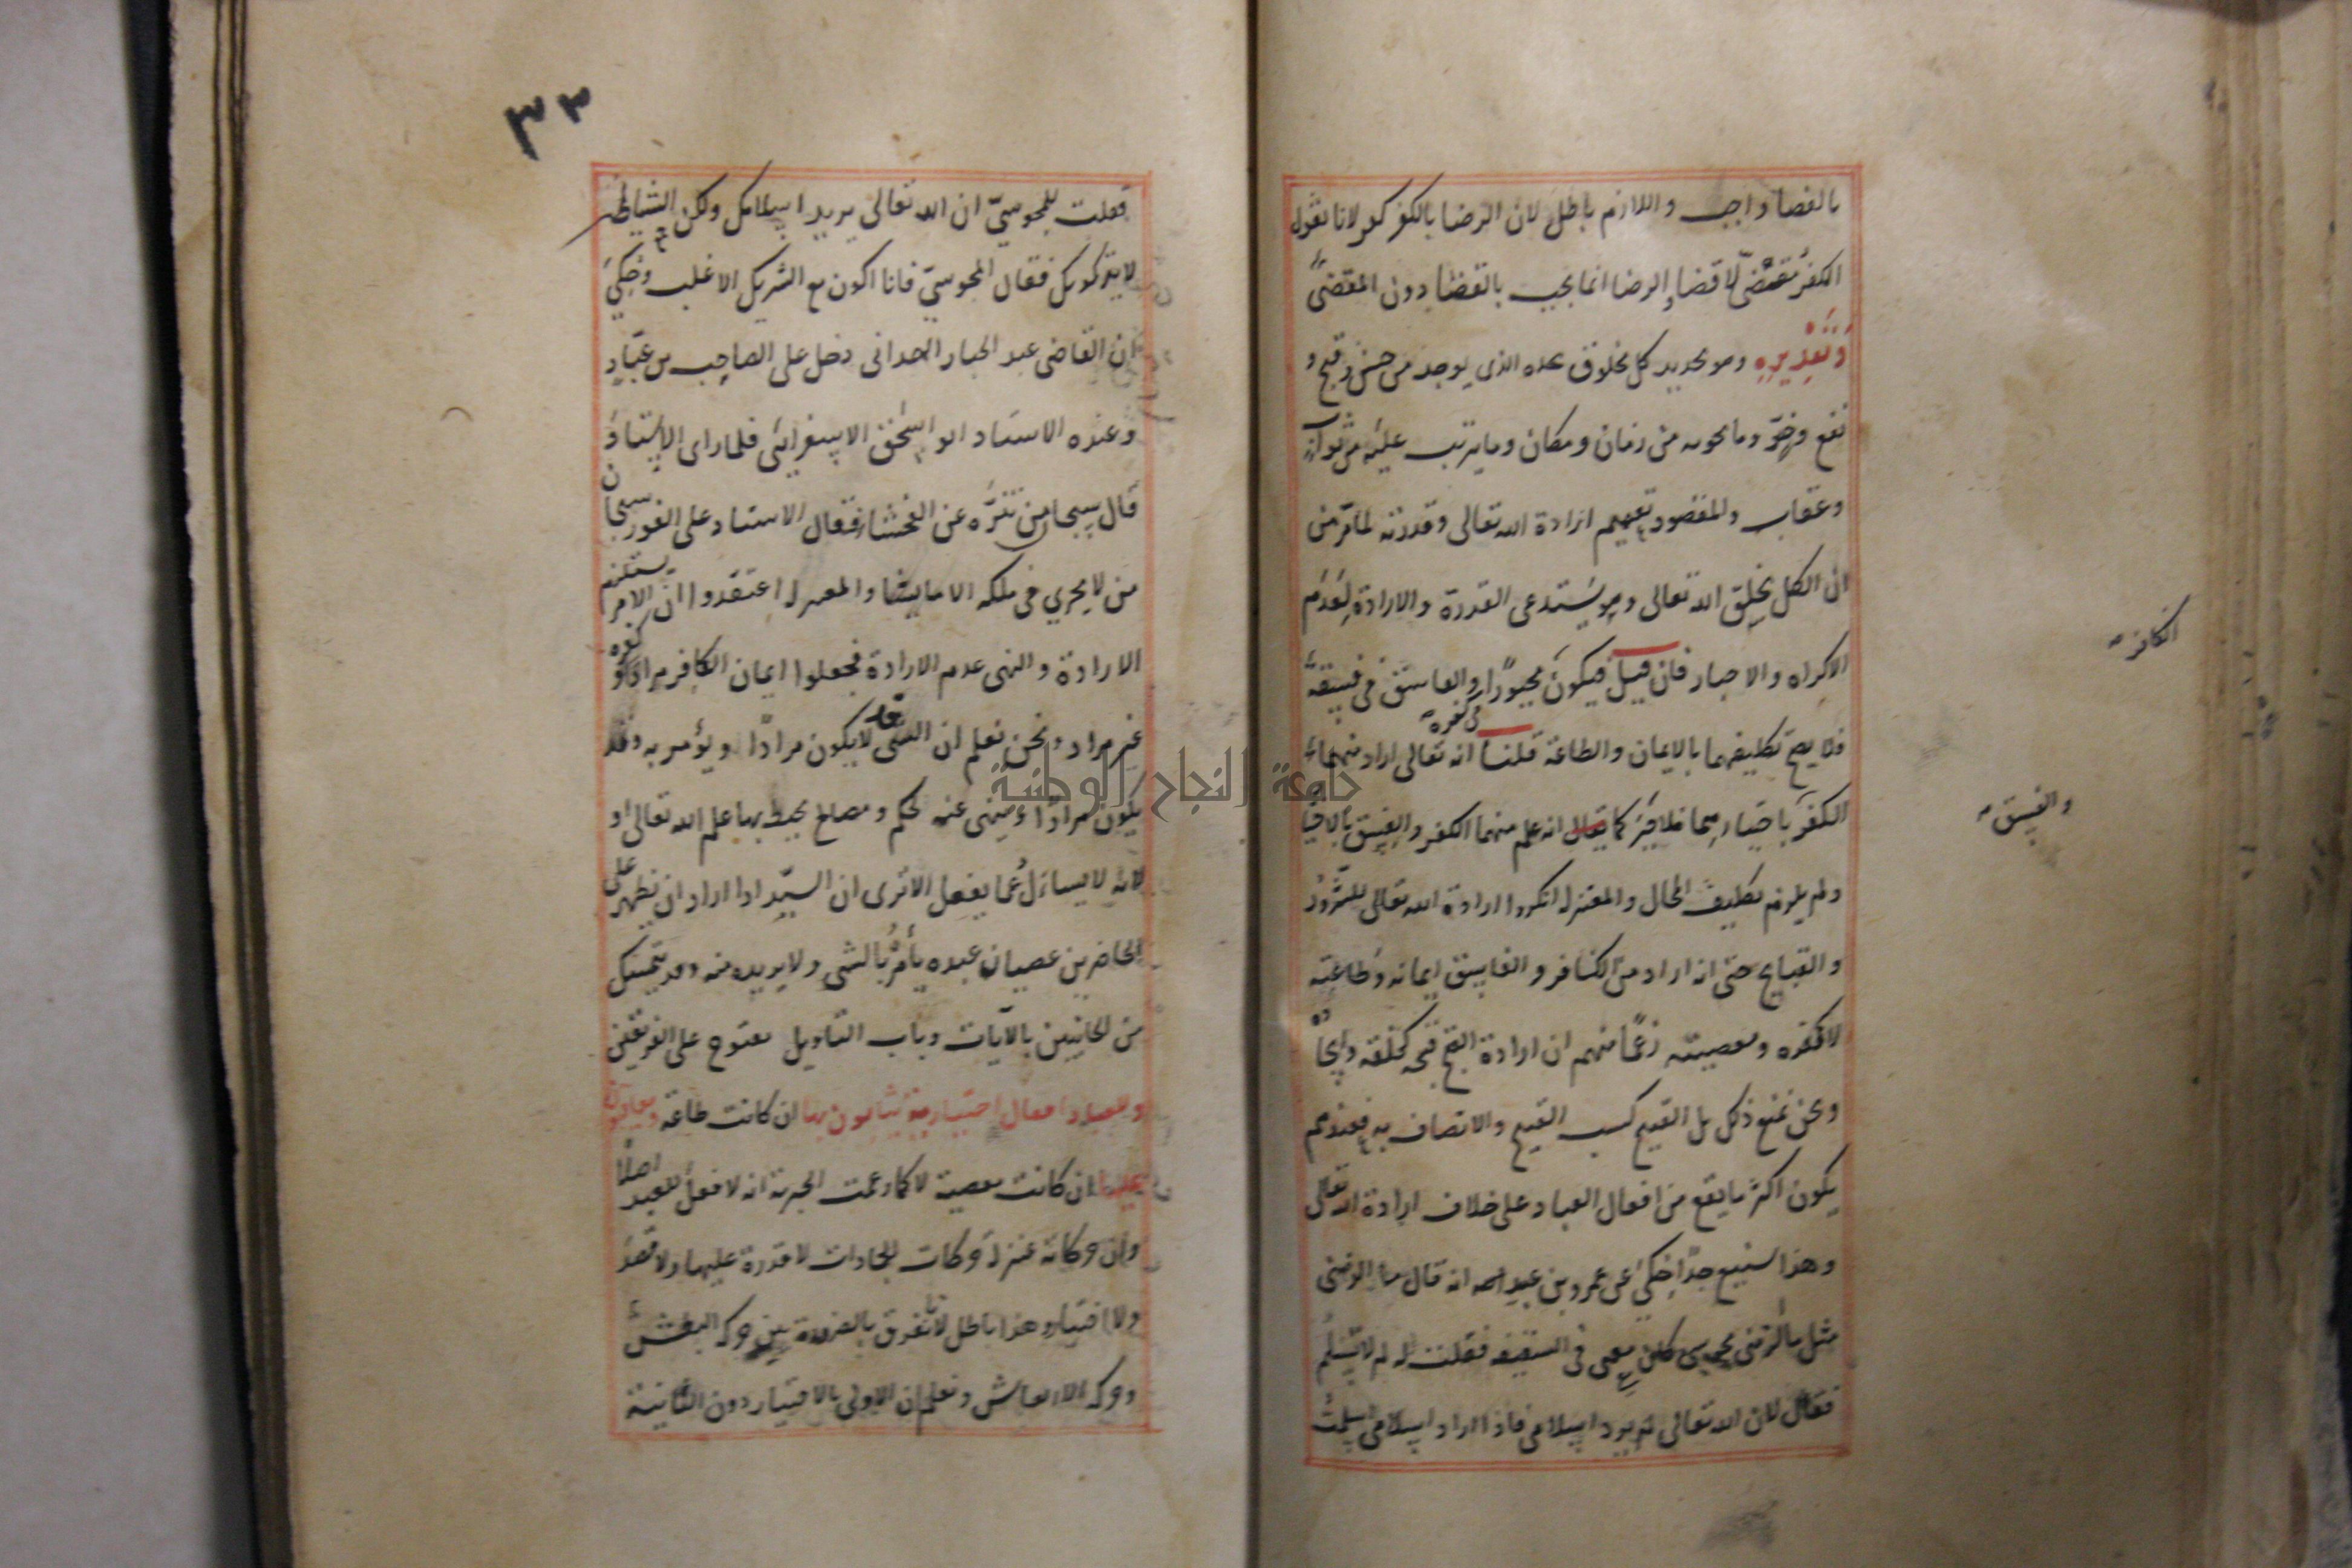 بالقضاء واجب واللازم باطل لان الرضا بالكفر كفر لانا نقول
الكفر مقضىّ لا قضاء والرضا انما يجب بالقضاء دون المقضى
وتقديره وهو تحديد كل مخلوق بحده الذى يوجد من حسن وقبح و
نفع وضرّ وما يحويه من زمان ومكان وما يترتب عليه من ثواب
وعقاب والمقصود تعميم ارادة الله تعالى وقدرته لما مرّ من
ان الكل بخلق الله تعالى وهو يستدعى القدرة والارادة لعدم
الاكراه والاجبار فان قيل فيكون مجبورًا والفاسق فى فسقه
الكافر
فى كفره
فلا يصح تكليفهما بالايمان والطاعة قلنا انه تعالى اراد منهما
الكفر باختيارهما فلا جبر كما يقال انه علم منهما الكفر والفسق بالاختيا
والفسق
ولم يلزم تكليف المحال والمعتزلة انكروا ارادة الله تعالى للشرور
والقبايح حتى انه اراد من الكافر والفاسق ايمانه وطاعته
لا كفره ومعصيته زعمًا منهم ان ارادة القبيح قبيحة كخلقه وايجاده
ونحن نمنع ذلك بل القبيح كسب القبيح والاتصاف به فعندهم
يكون اكثر ما يقع من افعال العباد على خلاف ارادة الله تعالى
وهذا شنيع جدًا حكى عن عمرو بن عبيد انه قال ما الزمنى
مثل ما الزمنى مجوسى كان معى فى السفينة فقلت له لم لا تسلم
فقال لان الله تعالى لم يرد اسلامى فاذا اراد اسلامى اسلمت
٣٣
فقلت للمجوسىّ ان الله تعالى يريد اسلامك ولكن الشياطين
لا يتركونك فقال المجوسىّ فانا اكون مع الشريك الاغلب وحكى
ان القاضى عبد الجبار الهمدانى دخل على الصاحب بن عباد
وعنده الاستاد ابو اسحق الاسفراينى فلما راى الاستاد
قال سبحان من تنزّه عن الفحشاء فقال الاستاد على الفور سبحان
من لا يجرى فى ملكه الا ما يشاء والمعتزلة اعتقدوا ان الامر يستلزم
الارادة والنهى عدم الارادة فجعلوا ايمان الكافر مرادًا وكفره
غير مراد ونحن نعلم ان الشى قد لا يكون مرادًا ويؤمر به وقد
يكون مرادًا وينهى عنه لحكم ومصالح يحيط بها علم الله تعالى او
لانه لا يسال عما يفعل الا ترى ان السيّد اذا اراد ان يظهر على
الحاضرين عصيان عبده يأمره بالشى ولا يريده منه وقد يتمسك
من الجانبين بالآيات وباب التاويل مفتوح على الفريقين
وللعباد افعال اختيارية يثابون بها ان كانت طاعة ويعاقبون
عليها ان كانت معصية لا كما زعمت الجبرية انه لا فعل للعبد اصلًا
وان حركاته بمنزلة حركات الجمادات لا قدرة عليها ولا قصد
ولا اختيار وهذا باطل لانا نفرق بالضرورة بين حركة البطش
وحركة الارتعاش ونعلم ان الاولى بالاختيار دون الثانية
جامعة النجاح الوطنية